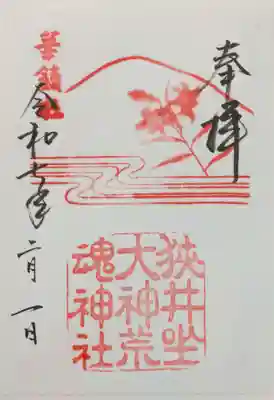 奉拝
狹井坐
大神荒
魂神社
華鎮社
令和七年二月一日